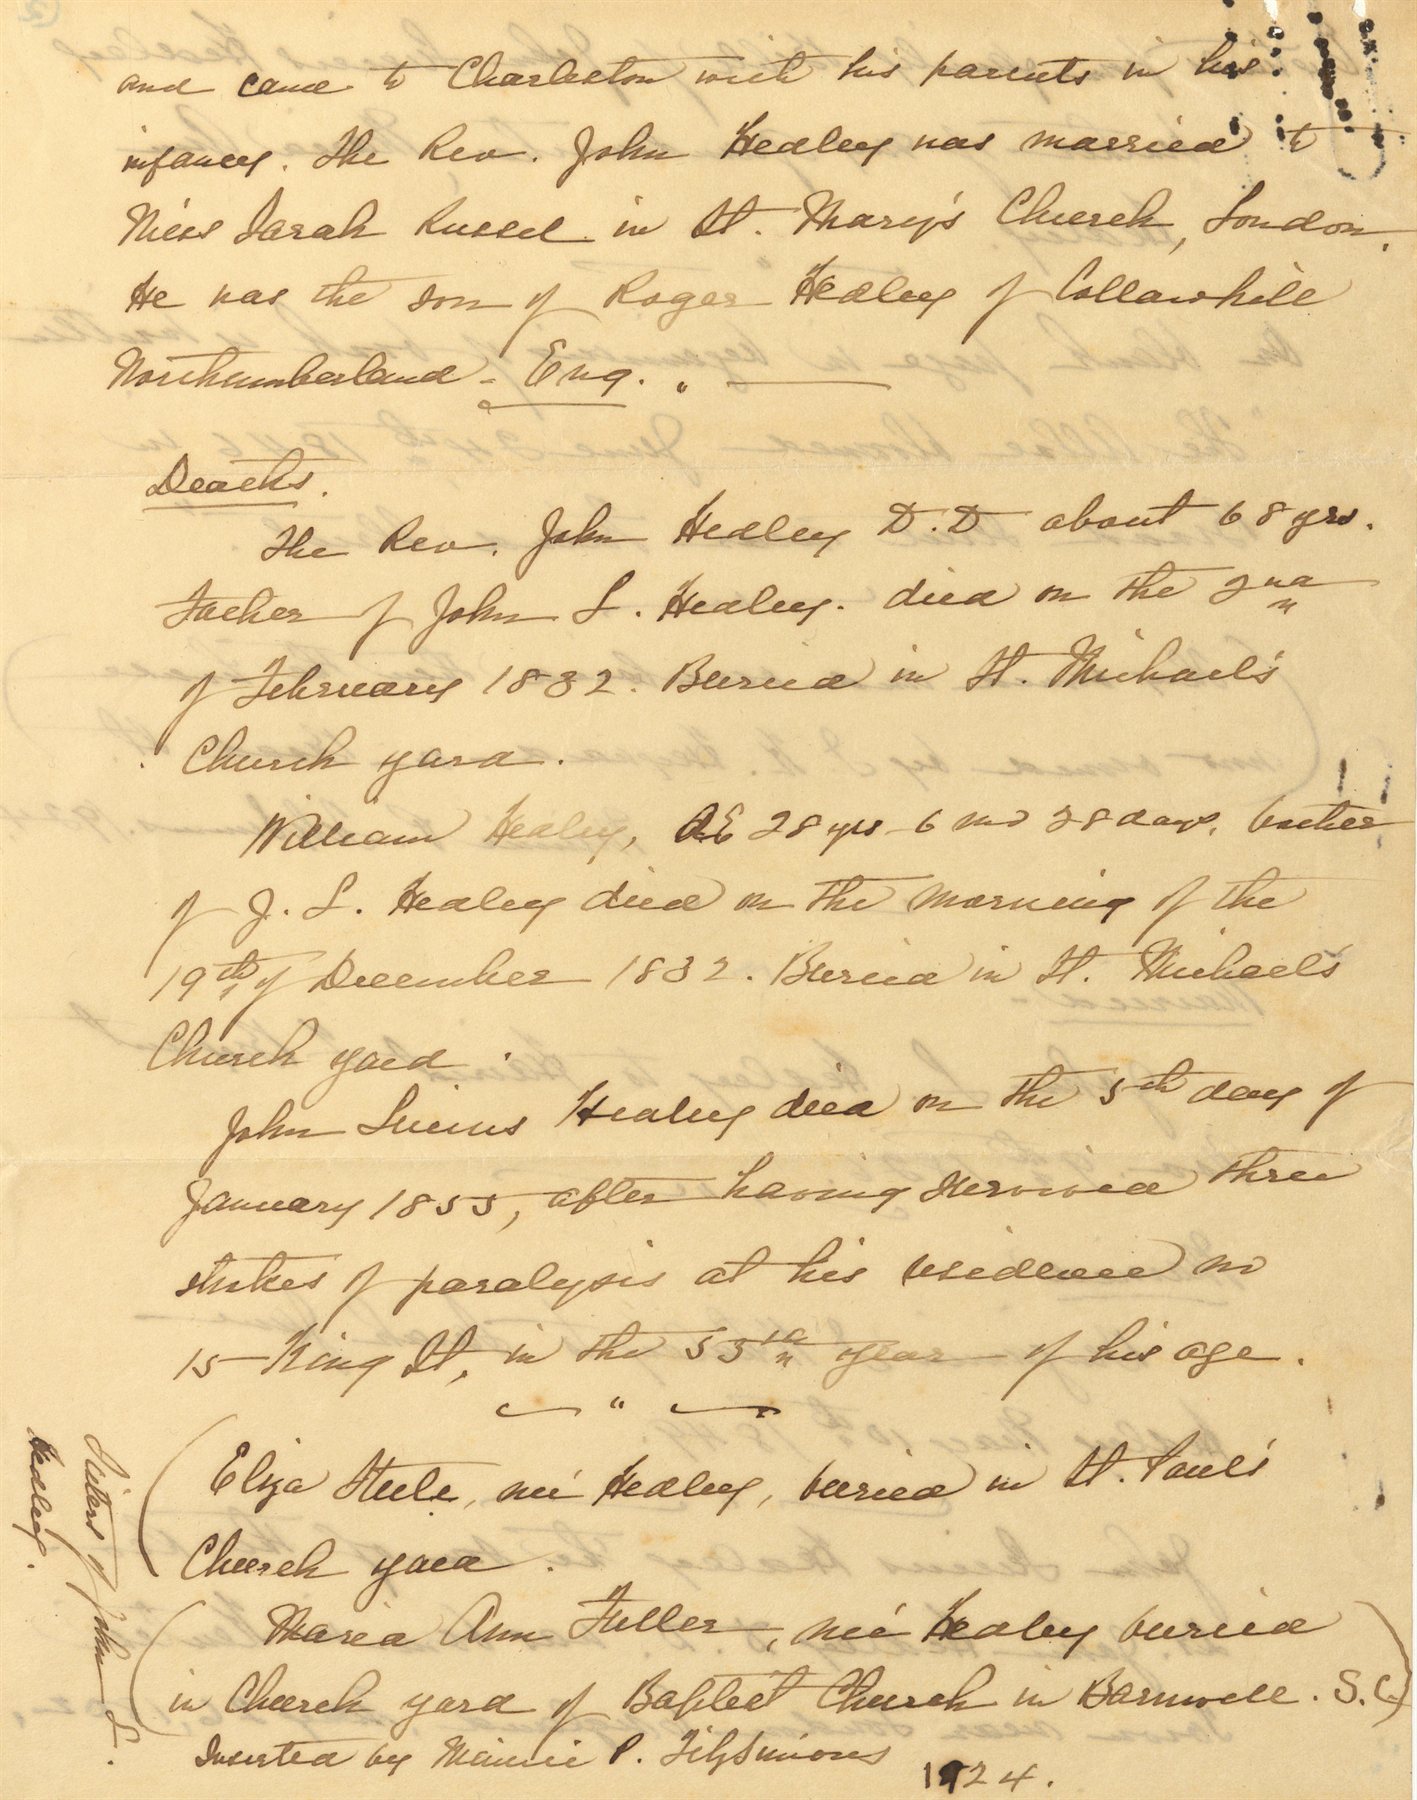 and came to Charleston with his parents in his
infancy. The Rev. John Hedley was married to
Miss Sarah Russel in St. Mary's Church, London.
He was the son of Roger Hedley of Collawhill
Northumberland - Eng. "
Deaths.
The Rev. John Hedley D.D about 68 yrs.
Father of John L. Hedley. died on the 2nd
of February 1832. Buried in St. Michael's
Church yard.
William Hedley, AE 28 yrs 6 mo 28 days, brother
of J. L. Hedley died on the morning of the
19th of December 1832. Buried in St. Michael's
Church yard.
John Lucius Hedley died on the 5th day of
January 1855, after having survived three
strokes of paralysis at his residence no
15 King St, in the 53rd year of his age.
"
Eliza Steele, neé Hedley, buried in St. Paul's
Church yard.
Maria Ann Fuller, neé Hedley buried
in Church yard of Baptist Church in Barnwell. S.C.)
Sisters of John L.
Hedley.
Inserted by Mamie P. FitzSimons
1924.